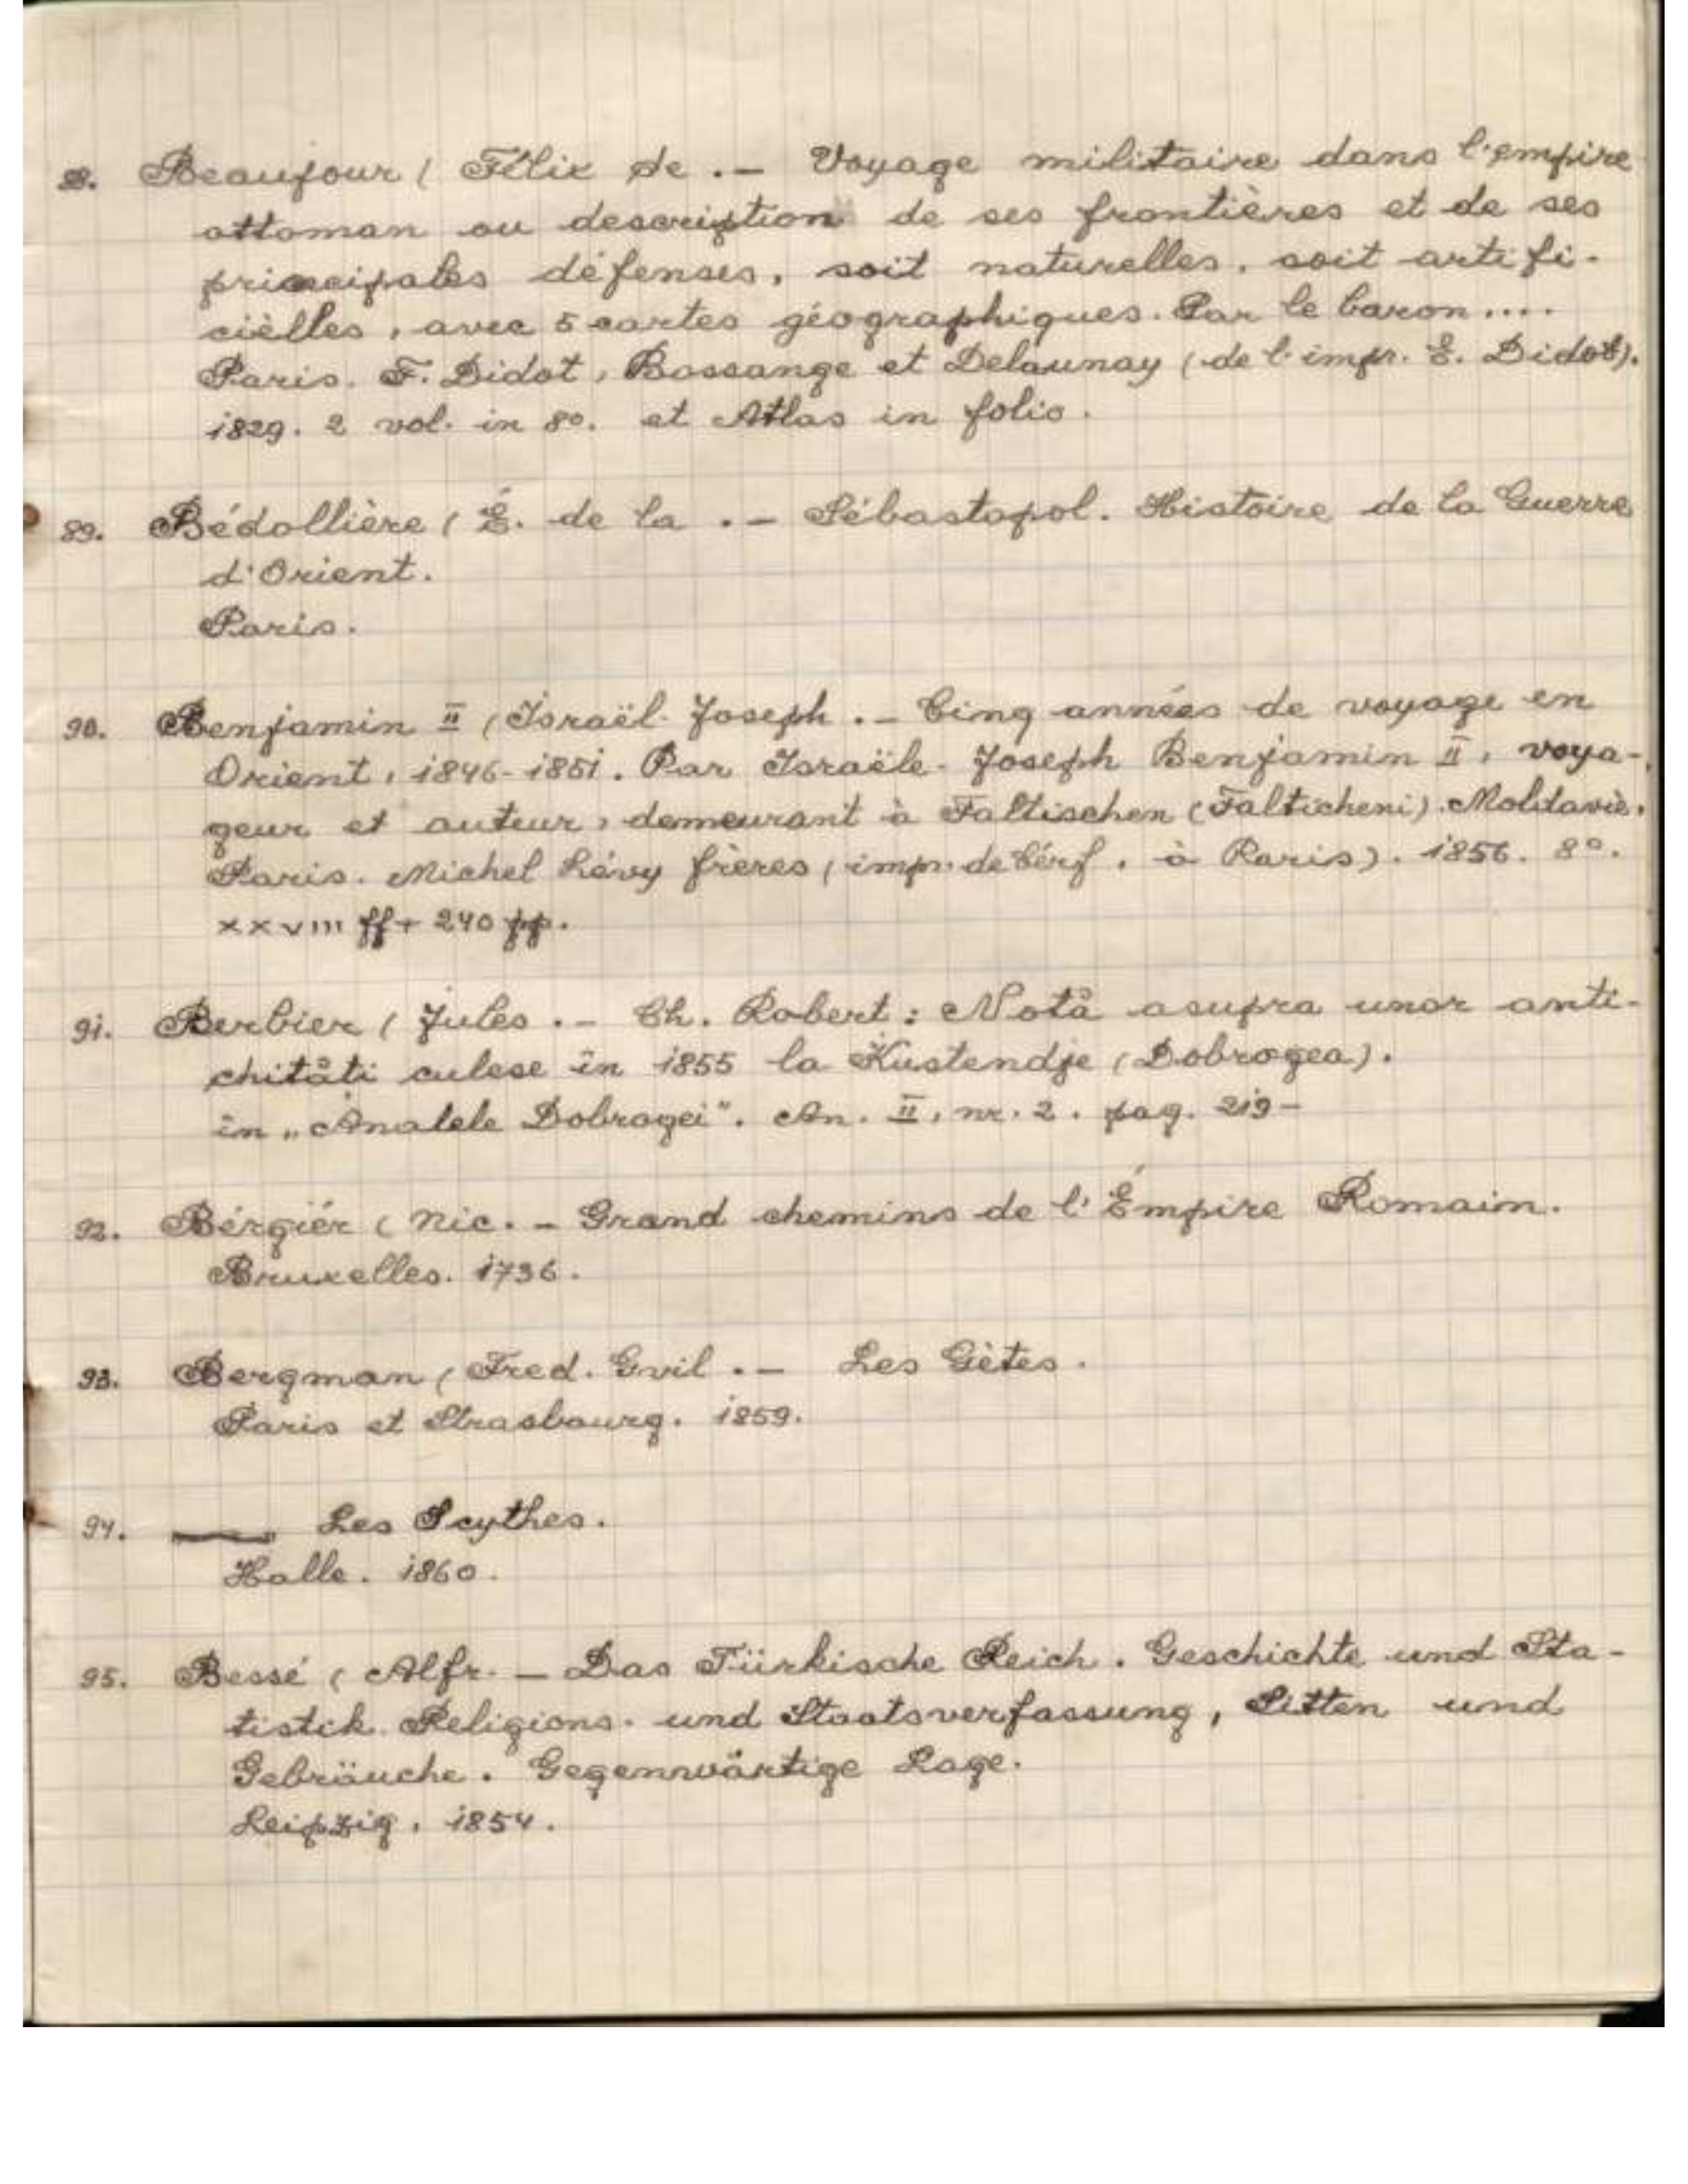 88. Beaujour ( Félix de .— Voyage militaire dans l'empire
ottoman ou description de ses frontières et de ses
principales défenses, soit naturelles, soit artifi-
cièlles, avec 5 cartes géographiques. Par le baron....
Paris. F. Didot, Bossange et Delaunay (de l'impr. E. Didot).
1829. 2 vol. in 8º. et Atlas in folio.
89. Bédollière ( É. de la .— Sébastopol. Histoire de la Guerre
d'Orient.
Paris.
90. Benjamin II (Israël-Joseph .— Cinq années de voyage en
Orient, 1846-1851. Par Israële-Joseph Benjamin II, voya-
geur et auteur, demeurant à Faltischen (Falticheni). Moldavie.
Paris. Michel Lévy frères (imp. de Cérf, à Paris). 1856. 8º.
XXVIII ff + 240 pp.
91. Berbier ( Jules .— Ch. Robert: Notă asupra unor anti-
chităti culese în 1855 la Kustendje (Dobrogea).
în „Analele Dobrogei". An. II, nr. 2. pag. 219—
92. Bérgiér ( Nic. — Grand chemins de l'Émpire Romain.
Bruxelles. 1736.
93. Bergman ( Fred. Gvil .— Les Gètes.
Paris et Strasbourg. 1859.
94. —— Les Scythes.
Halle. 1860.
95. Bessé ( Alfr. — Das Türkische Reich. Geschichte und Sta-
tistik. Religions- und Staatsverfassung, Sitten und
Gebräuche. Gegenwärtige Lage.
Leipzig, 1854.